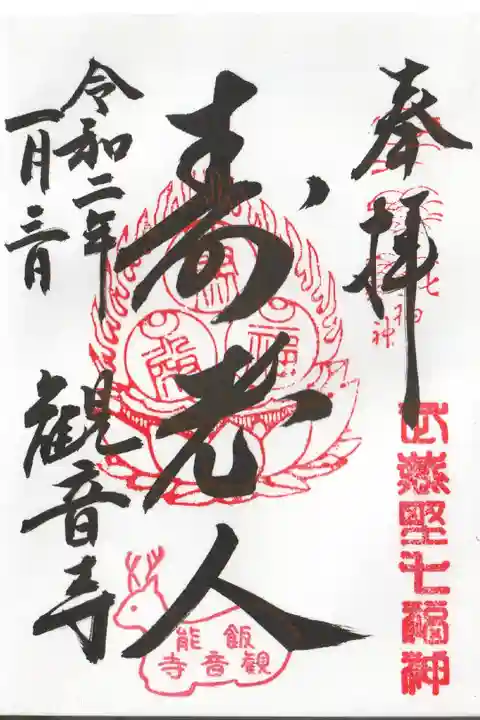 奉拝
武蔵野七福神
寿老人
令和二年
一月三日
観音寺
飯能
観音寺